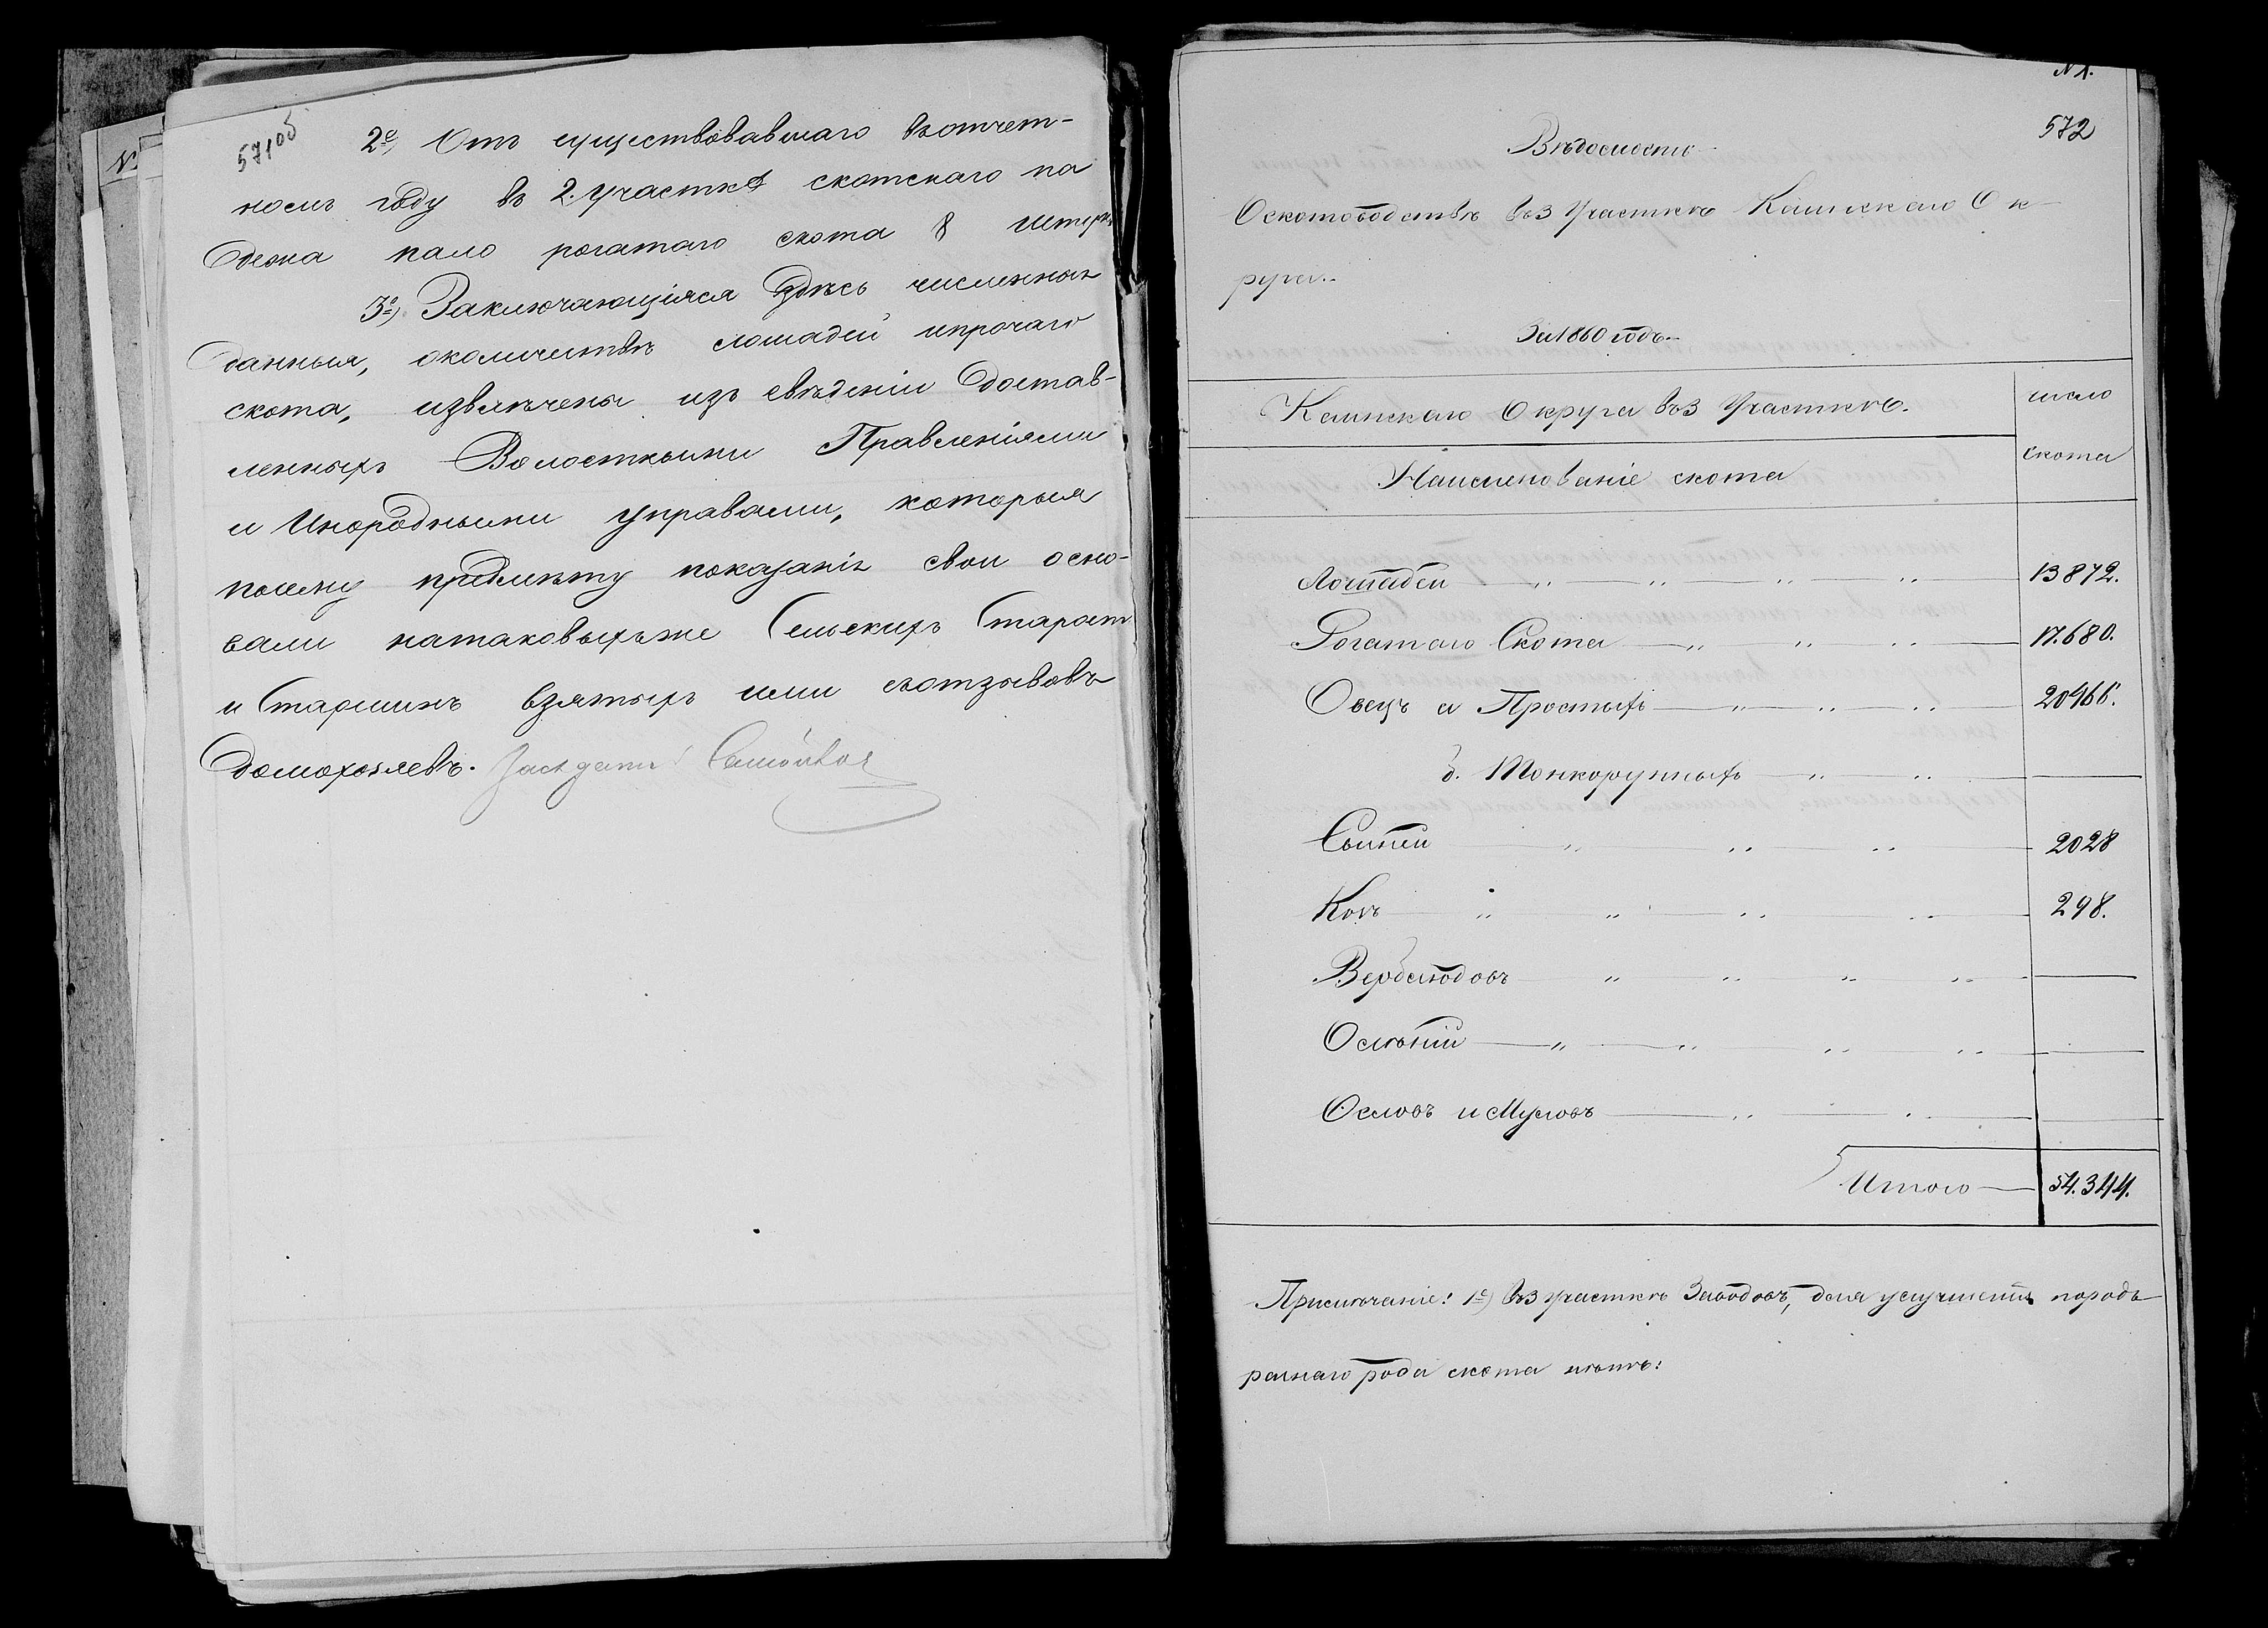 571 об
2е) Отъ существовавшаго вотчет-
номъ году въ 2. Участкѣ скотскаго па
дежа пало рогатаго скота 8 штукъ
3е) Заключающіяся здѣсь численныя
данныя, околичествѣ лошадей ипрочаго
скота, извлѣчены изъ свѣденіи достав-
ленныхъ Волостными Правленіями
и Инородными управами, которыя
посему предмѣту показанія свои осно-
вали натаковыхъже Сельскихъ Старост
и Старшинъ взятыхъ ими сотзывовъ
домохозяевъ.
№
N 1.
572
Вѣдомость
Оскотоводствѣ въ 3 Участкѣ Каинскаго Ок
руга.
За 1860 годъ.
Каинскаго Округа въ 3 Участкѣ.
число
скота
Наименованіе скота
Лошадей 13872.
Рогатаго Скота 17.680.
Овецъ а Простыхъ 20466.
б. Тонкорунныхъ —
Свиней 2028
Козъ 298.
Верблюдовъ —
Оленій —
Ословъ и Муловъ —
Итого 54.344.
Примѣчаніе: 1е) Въ 3 участкѣ Заводовъ, для улучшенія породъ
разнаго рода скота нѣтъ: